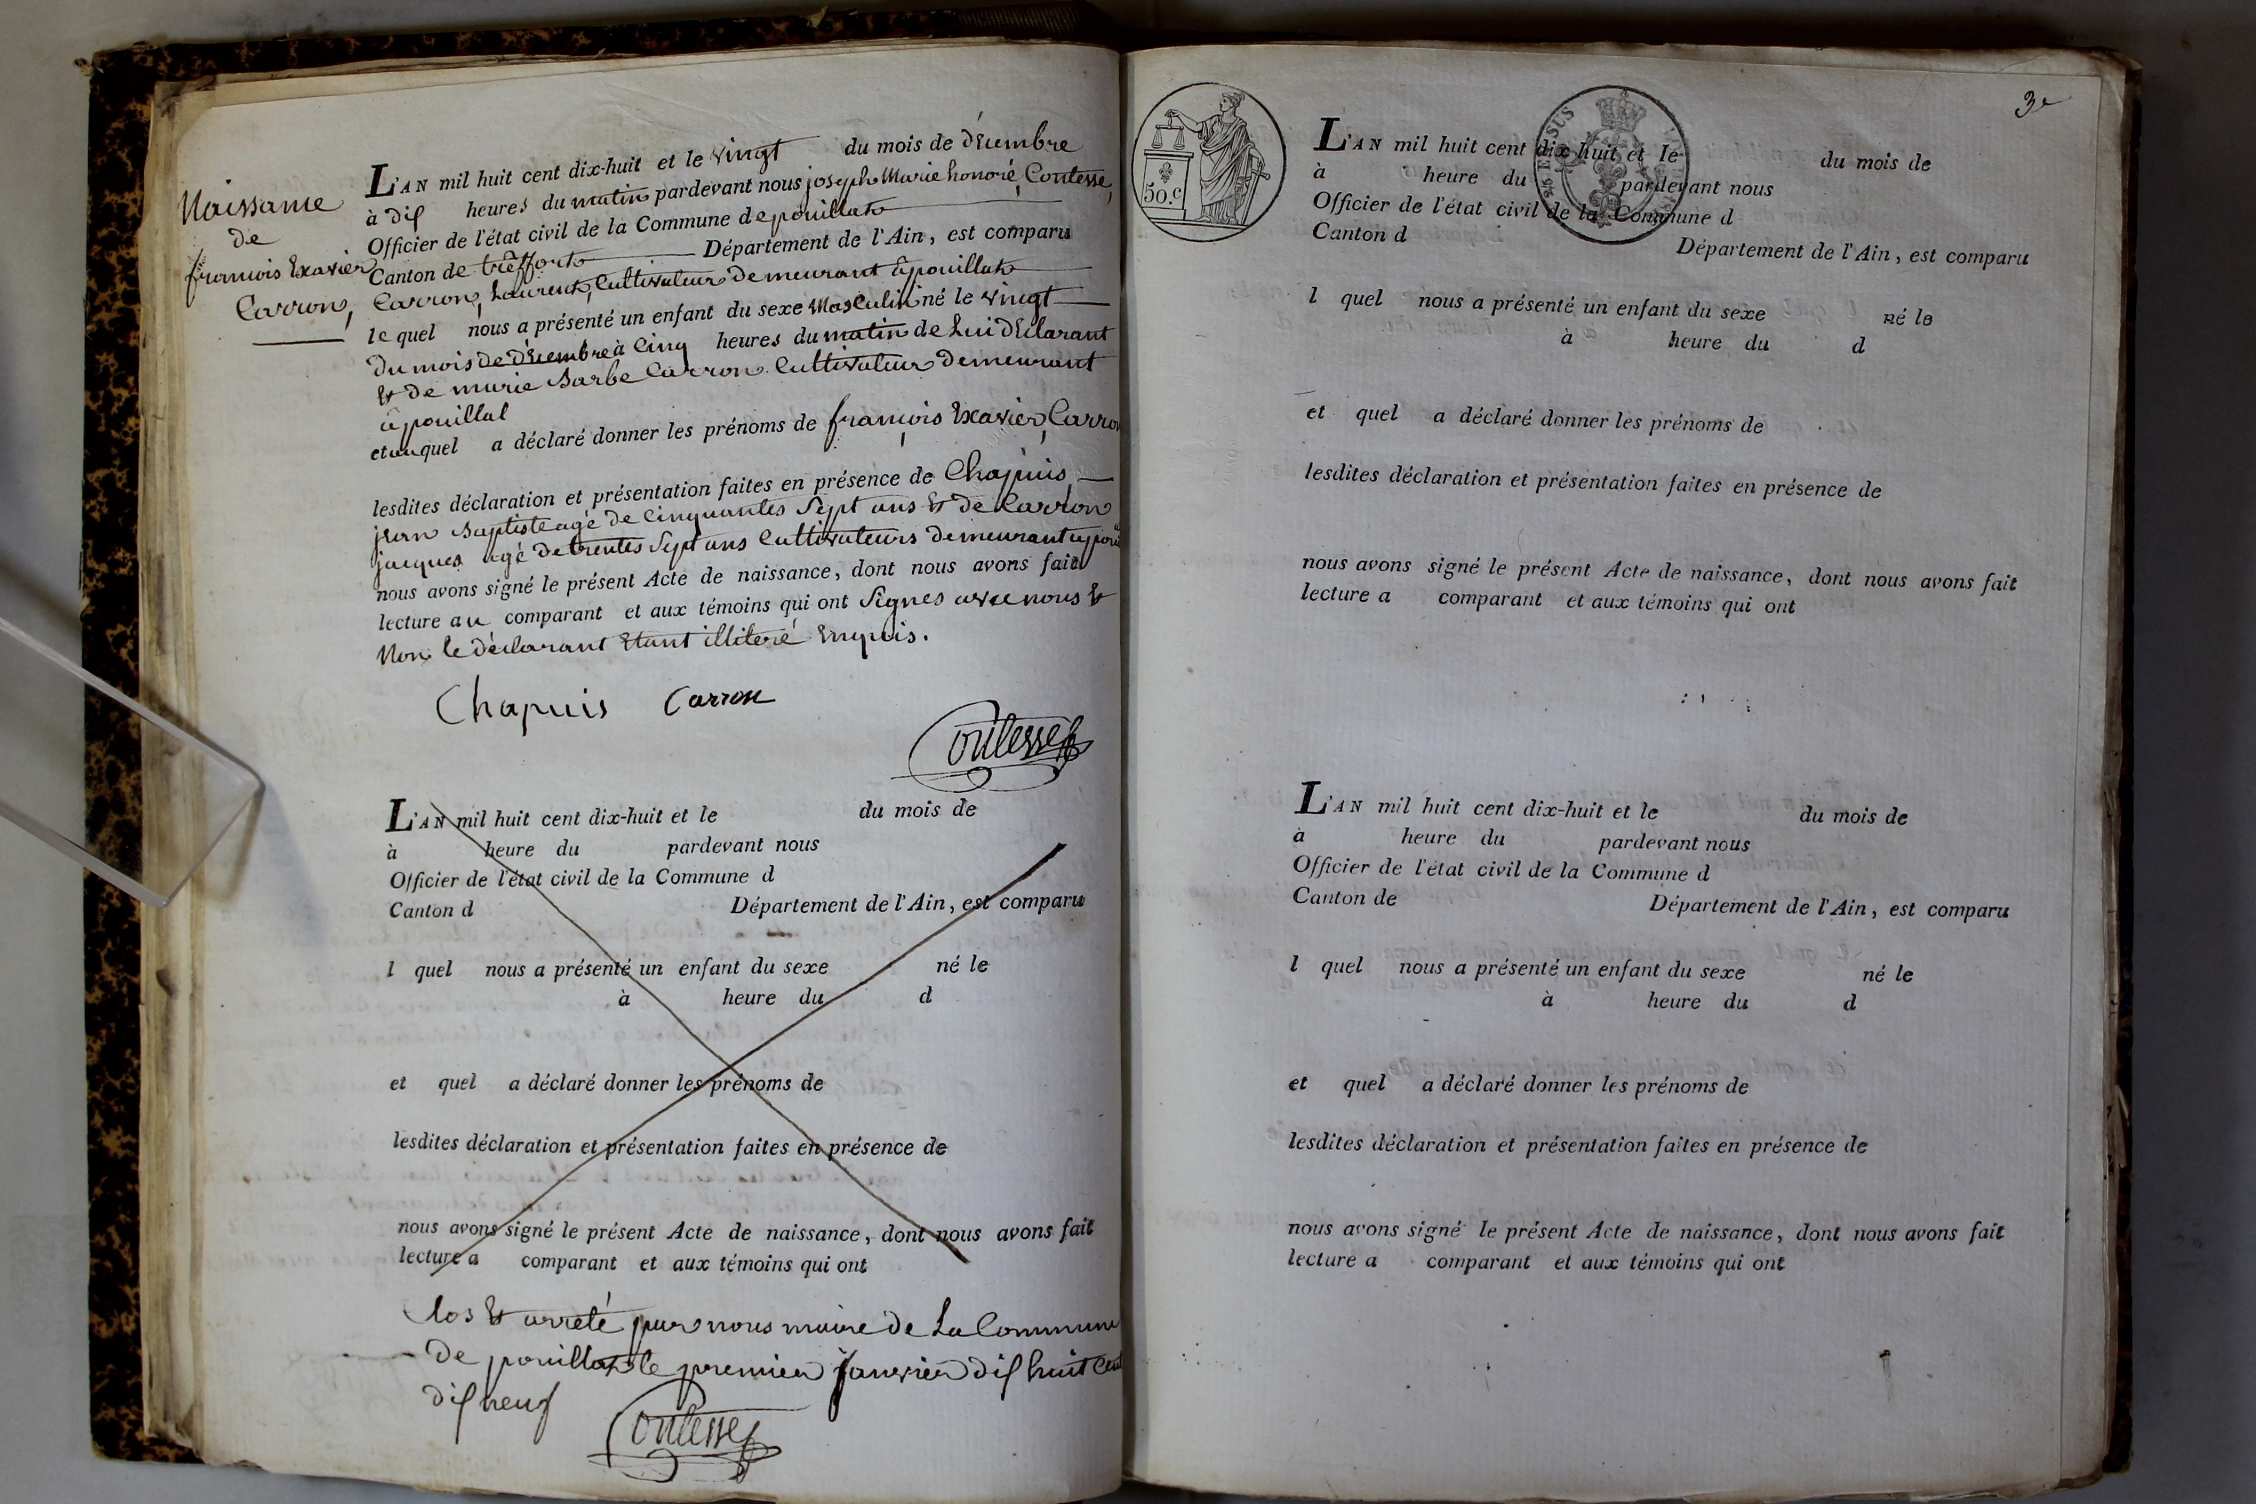 Naissance
de
françois Exavier
Carron,
L'AN mil huit cent dix-huit et le vingt du mois de décembre
à dis heures du matin pardevant nous joseph Marie honoré Coutesse,
Officier de l'état civil de la Commune de pouillat
Canton de trèffort Département de l'Ain, est comparu
Carron, Laurent, Cultivateur demeurant à pouillat
le quel nous a présenté un enfant du sexe Masculin né le vingt
du mois de décembre à Cinq heures du matin de Lui déclarant
et de marie Barbe Carron Cultivateur demeurant
à pouillat
et au quel a déclaré donner les prénoms de françois Exavier, Carron
lesdites déclaration et présentation faites en présence de Chapuis
jean Baptiste agé de Cinquantes Sept ans et de Carron
jacques agé de trentes Sept ans Cultivateurs demeurant a
nous avons signé le présent Acte de naissance, dont nous avons fait
lecture au comparant et aux témoins qui ont Signes avec nous et
Non le déclarant Etant illiteré Enquis.
Chapuis Carron
Coutesse
L'AN mil huit cent dix-huit et le du mois de
à heure du pardevant nous
Officier de l'état civil de la Commune d
Canton d Département de l'Ain, est comparu
l quel nous a présenté un enfant du sexe né le
à heure du d
et quel a déclaré donner les prénoms de
lesdites déclaration et présentation faites en présence de
nous avons signé le présent Acte de naissance, dont nous avons fait
lecture a comparant et aux témoins qui ont
Clos et arreté par nous maire de La Commune
de pouillat le premier janvier dis huit Cent
dis neuf
Coutesse
50.c
3e
L'AN mil huit cent dix huit et le du mois de
à heure du pardevant nous
Officier de l'état civil de la Commune d
Canton d Département de l'Ain, est comparu
l quel nous a présenté un enfant du sexe né le
à heure du d
et quel a déclaré donner les prénoms de
lesdites déclaration et présentation faites en présence de
nous avons signé le présent Acte de naissance, dont nous avons fait
lecture a comparant et aux témoins qui ont
L'AN mil huit cent dix-huit et le du mois de
à heure du pardevant nous
Officier de l'état civil de la Commune d
Canton de Département de l'Ain, est comparu
l quel nous a présenté un enfant du sexe né le
à heure du d
et quel a déclaré donner les prénoms de
lesdites déclaration et présentation faites en présence de
nous avons signé le présent Acte de naissance, dont nous avons fait
lecture a comparant et aux témoins qui ont